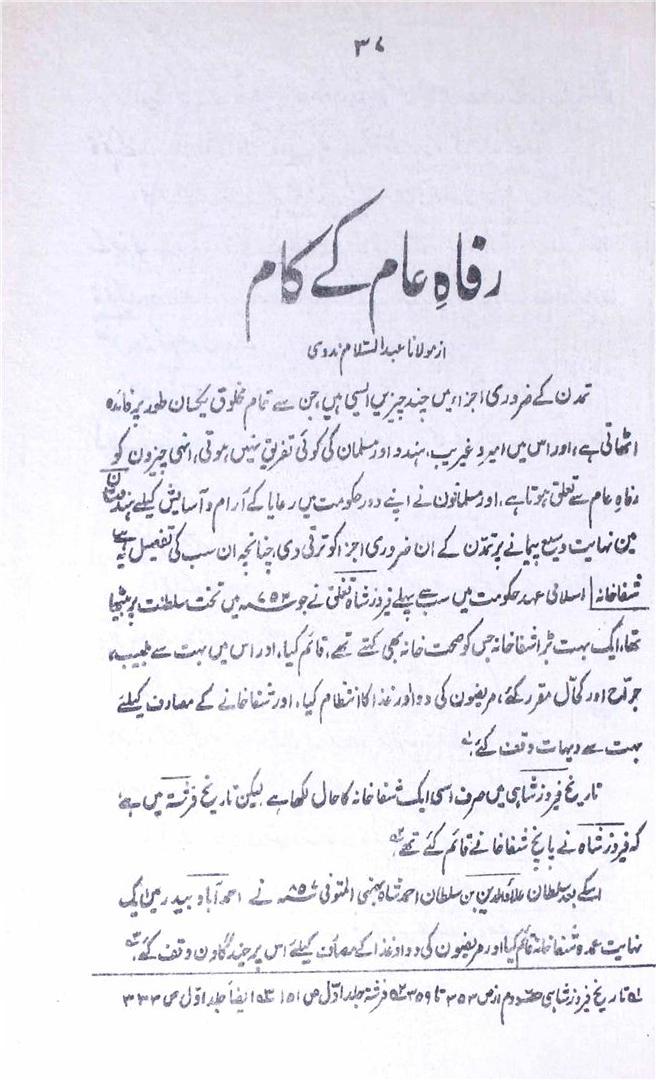 ۳۷
رفاہِ عام کے کام
از مولانا عبد السّلام ندوی
تمدن کے ضروری اجزاء میں چند چیزیں ایسی ہیں، جن سے تمام مخلوق یکسان طور پر فائدہ
اٹھاتی ہے، اور اس میں امیر و غریب، ہندو اور مسلمان کی کوئی تفریق نہیں ہوتی، انہی چیزون کو
رفاہِ عام سے تعلق ہوتا ہے، اور مسلمانون نے اپنے دورِ حکومت میں رعایا کے آرام و آسایش کیلئے ہندوستان
مین نہایت وسیع پیمانے پر تمدّن کے ان ضروری اجزا کو ترقی دی، چنانچہ ان سب کی تفصیل یہ ہے
شفاخانہ اسلامی عہد حکومت میں سب سے پہلے فیروز شاہ تغلق نے جو ۷۵۲ھ میں تخت سلطنت پر بیٹھا
تھا، ایک بہت بڑا شفاخانہ جس کو صحت خانہ بھی کہتے تھے، قائم کیا، اور اس میں بہت سے طبیب،
جرّاح اور کحّال مقرر کئے، مریضون کی دوا اور غذا کا انتظام کیا، اور شفاخانے کے مصارف کیلئے
بہت سے دیہات وقف کئے،
تاریخ فیروز شاہی میں صرف اسی ایک شفاخانہ کا حال لکھا ہے لیکن تاریخ فرشتہ میں ہے،
کہ فیروز شاہ نے پانچ شفاخانے قائم کئے تھے
اسکے بعد سلطان علاؤالدین بن سلطان احمد شاہ بہمنی المتوفی ۸۵۷ھ نے احمد آباد بیدر مین ایک
نہایت عمدہ شفاخانہ قائم کیا اور مریضون کی دوا و غذا کے مصارف کیلئے اس پر چند گاون وقف کئے،
۱؎ تاریخ فیروز شاہی حصّہ دوم از ص ۳۵۳ تا ۳۵۹ ۲؎ فرشتہ جلد اوّل ص ۱۵۱ ۳؎ ایضاً جلد اوّل ص ۳۳۳